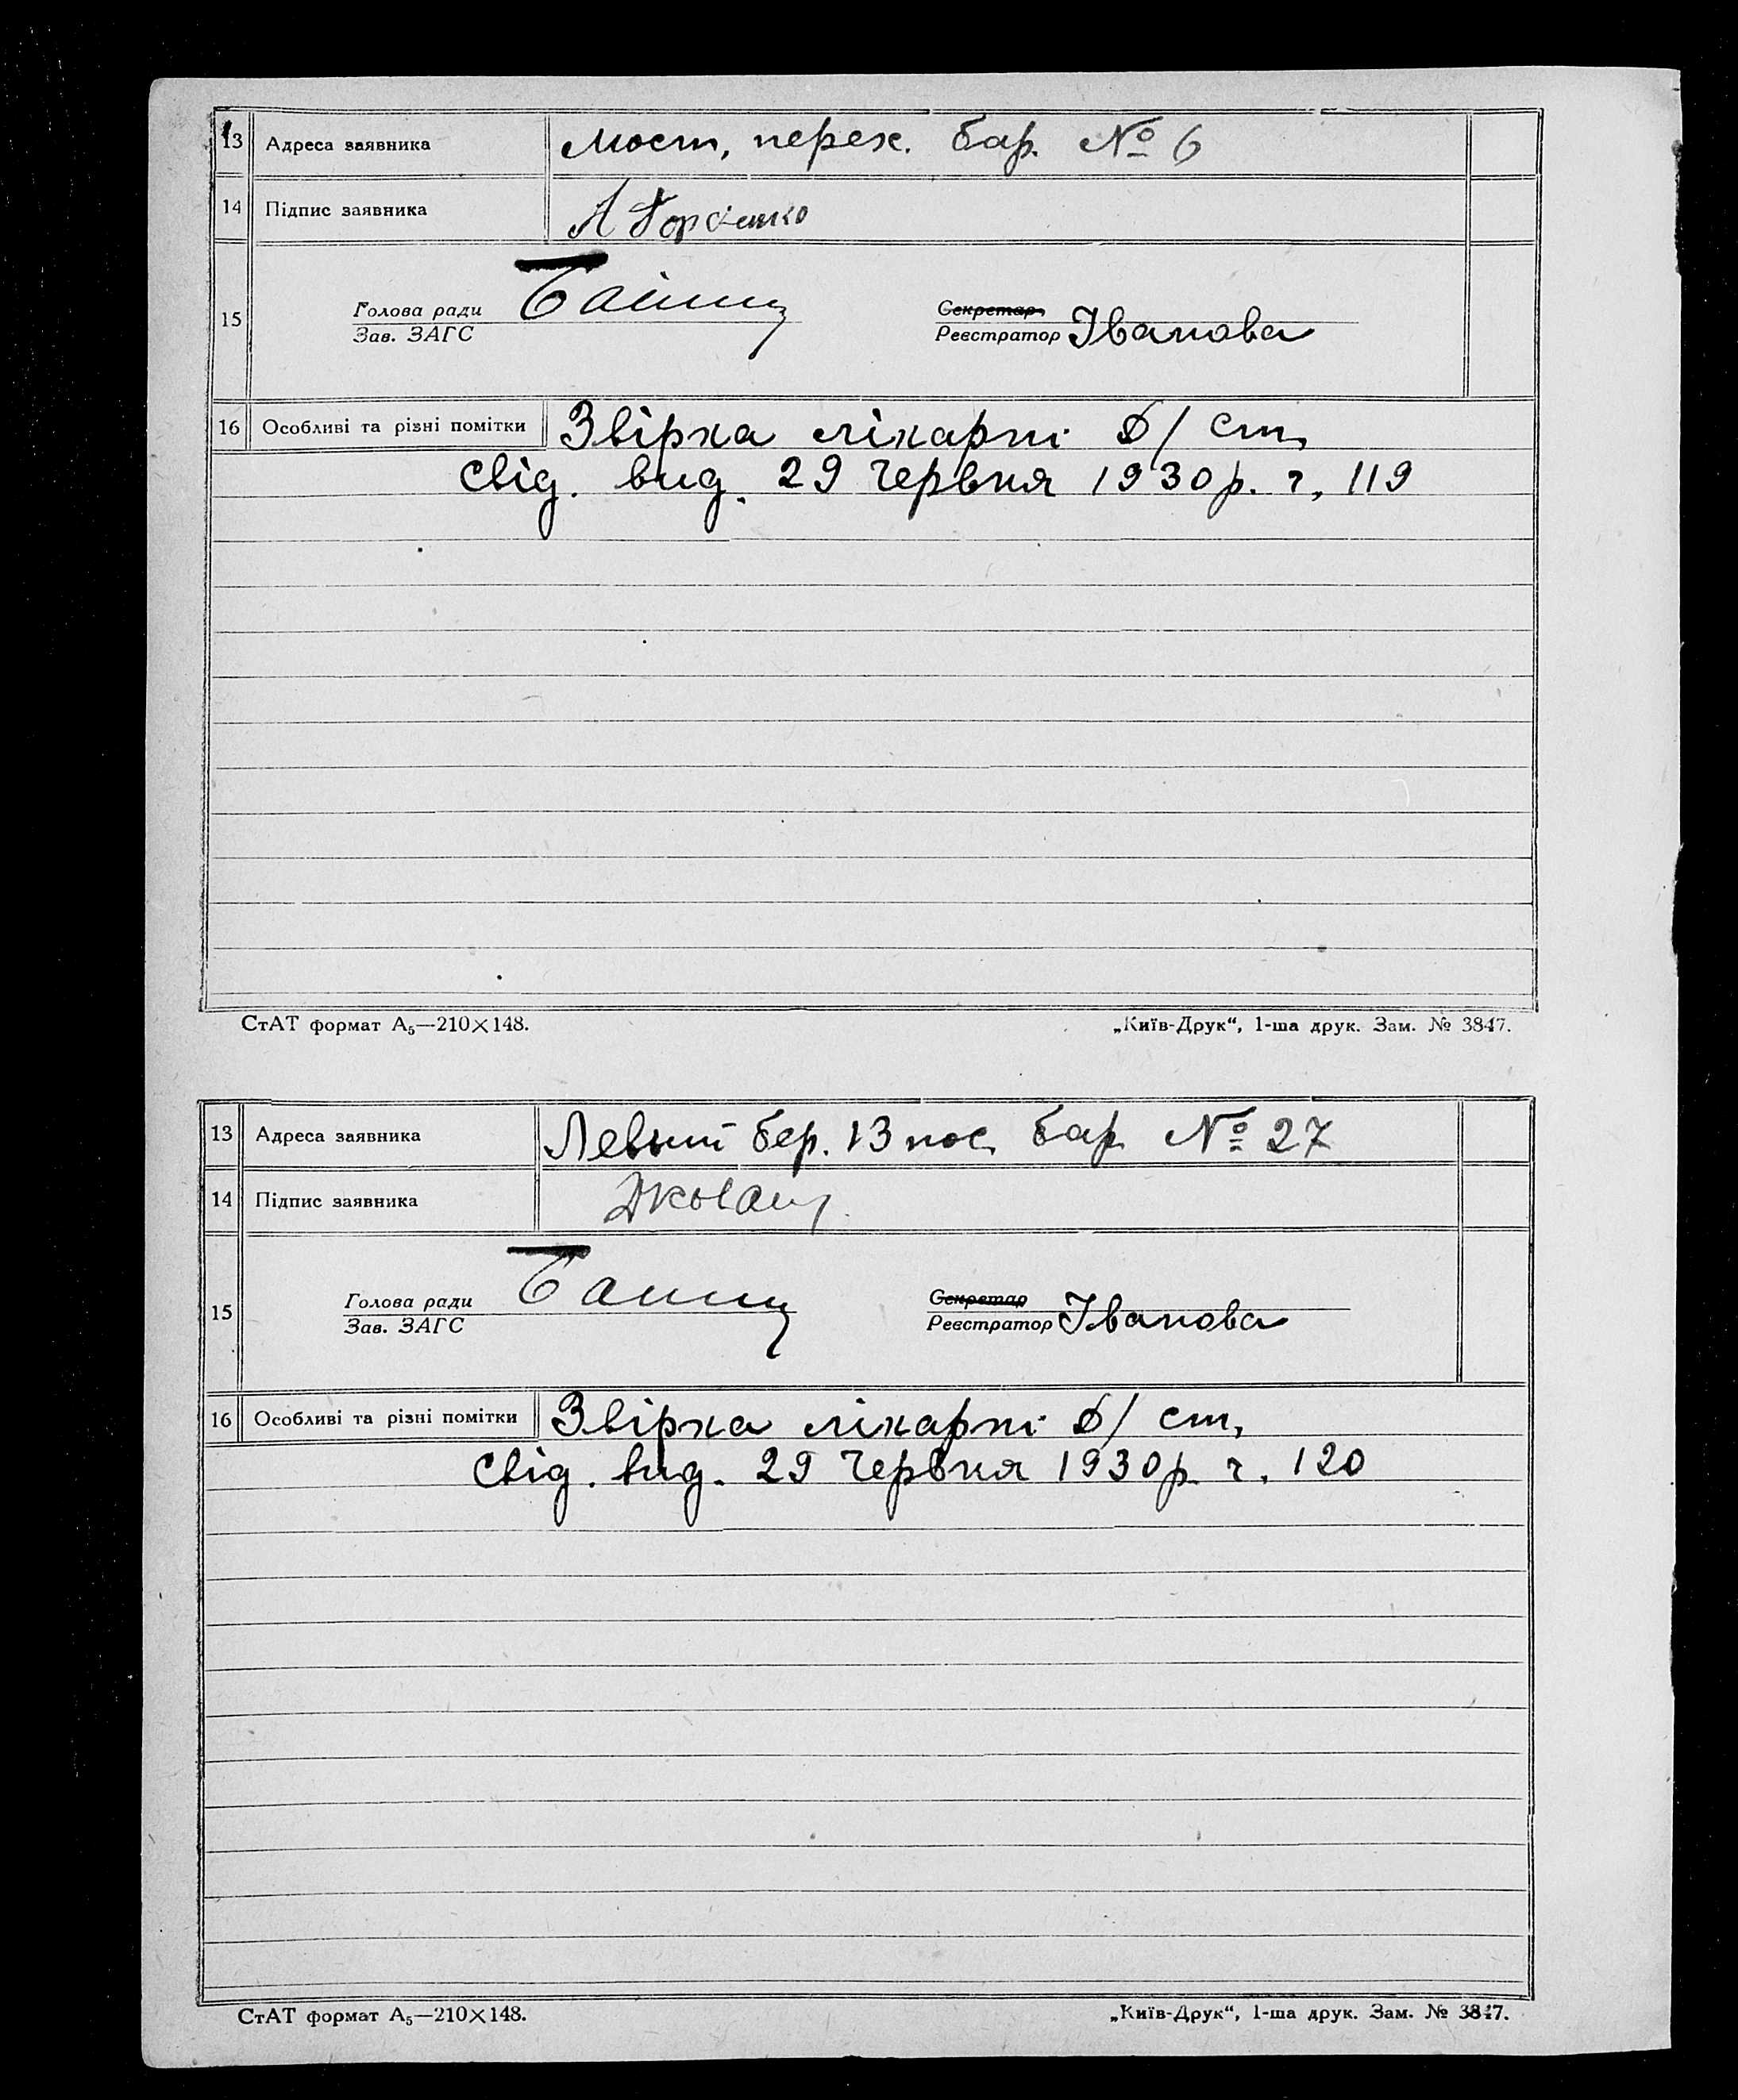 13 Адреса заявника мост, перех. бар. № 6
14 Підпис заявника
15 Голова ради Секретар
Зав. ЗАГС Реєстратор Іванова
16 Особливі та різні помітки Звірка лікарні Д/ ст,
свід. вид. 29 Червня 1930 р. ч. 119
СтАТ формат А₅—210×148. „Київ-Друк“, 1-ша друк. Зам. № 3847.
13 Адреса заявника Левый бер. 13 пос. бар № 27
14 Підпис заявника
15 Голова ради Секретар
Зав. ЗАГС Реєстратор Іванова
16 Особливі та різні помітки Звірка лікарні Д/ ст,
свід. вид. 29 Червня 1930 р. ч. 120
СтАТ формат А₅—210×148. „Київ-Друк“, 1-ша друк. Зам. № 3847.